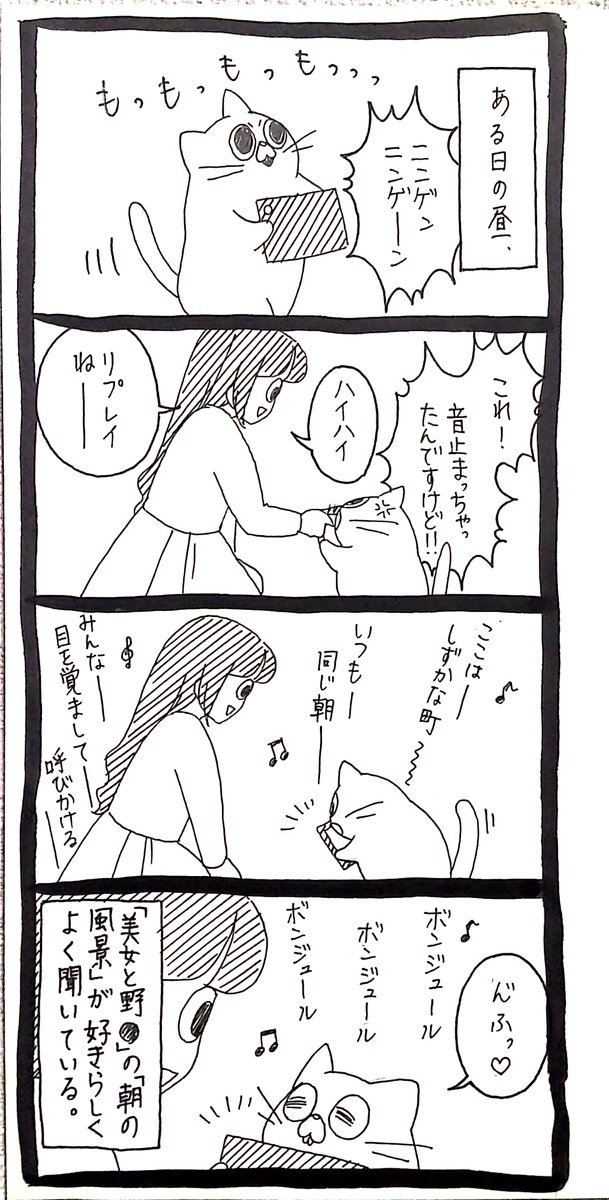 ある日の昼、
ニンゲン
ニンゲーン
もっもっもっもっっっ
これ!
音止まっちゃっ
たんですけど!!
ハイハイ
リプレイ
ねー
ここはー
しずかな町~
いつもー
同じ朝ー
みんなー
目を覚ましてー
呼びかけるー
ボンジュール
ボンジュール
ボンジュール
んふっ♡
「美女と野●」の「朝の
風景」が好きらしく
よく聞いている。